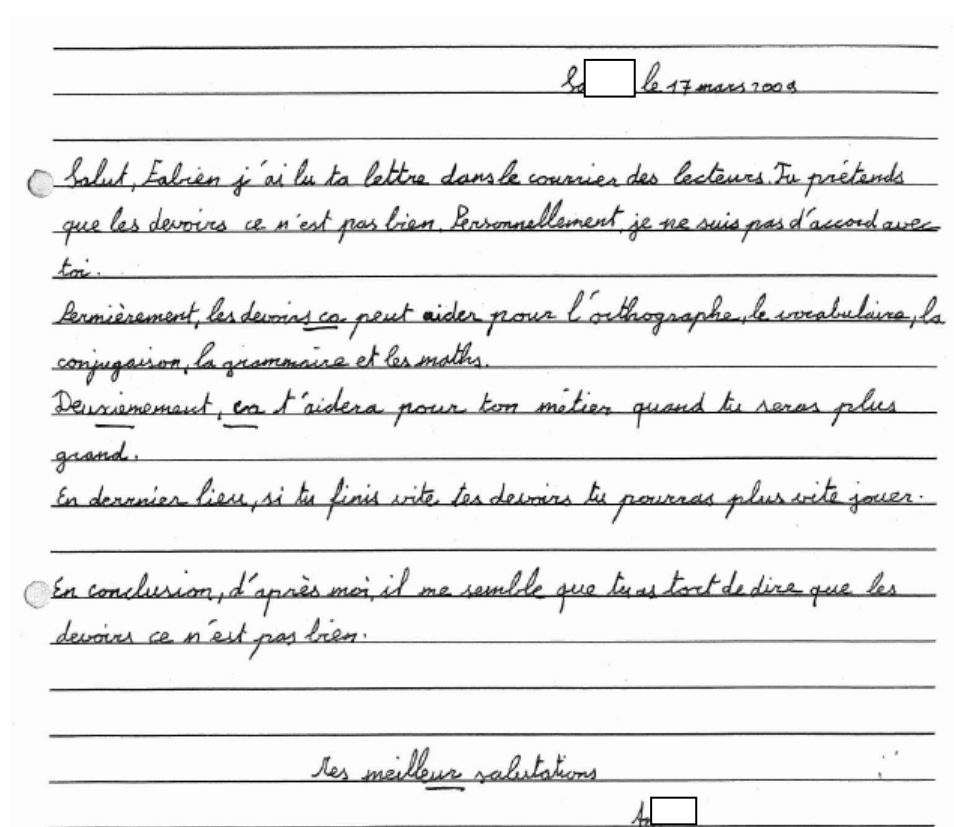 Sa le 17 mars 2009
Salut, Fabien j'ai lu ta lettre dans le courrier des lecteurs. Tu prétends
que les devoirs ce n'est pas bien. Personnellement, je ne suis pas d'accord avec
toi.
Permièrement, les devoirs ca peut aider pour l'orthographe, le vocabulaire, la
conjugaison, la grammaire et les maths.
Deuxiemement, ca t'aidera pour ton métier quand tu seras plus
grand.
En dernnier lieu, si tu finis vite tes devoirs tu pourras plus vite jouer.
En conclusion, d'après moi, il me semble que tu as tort de dire que les
devoirs ce n'est pas bien.
Mes meilleur salutations